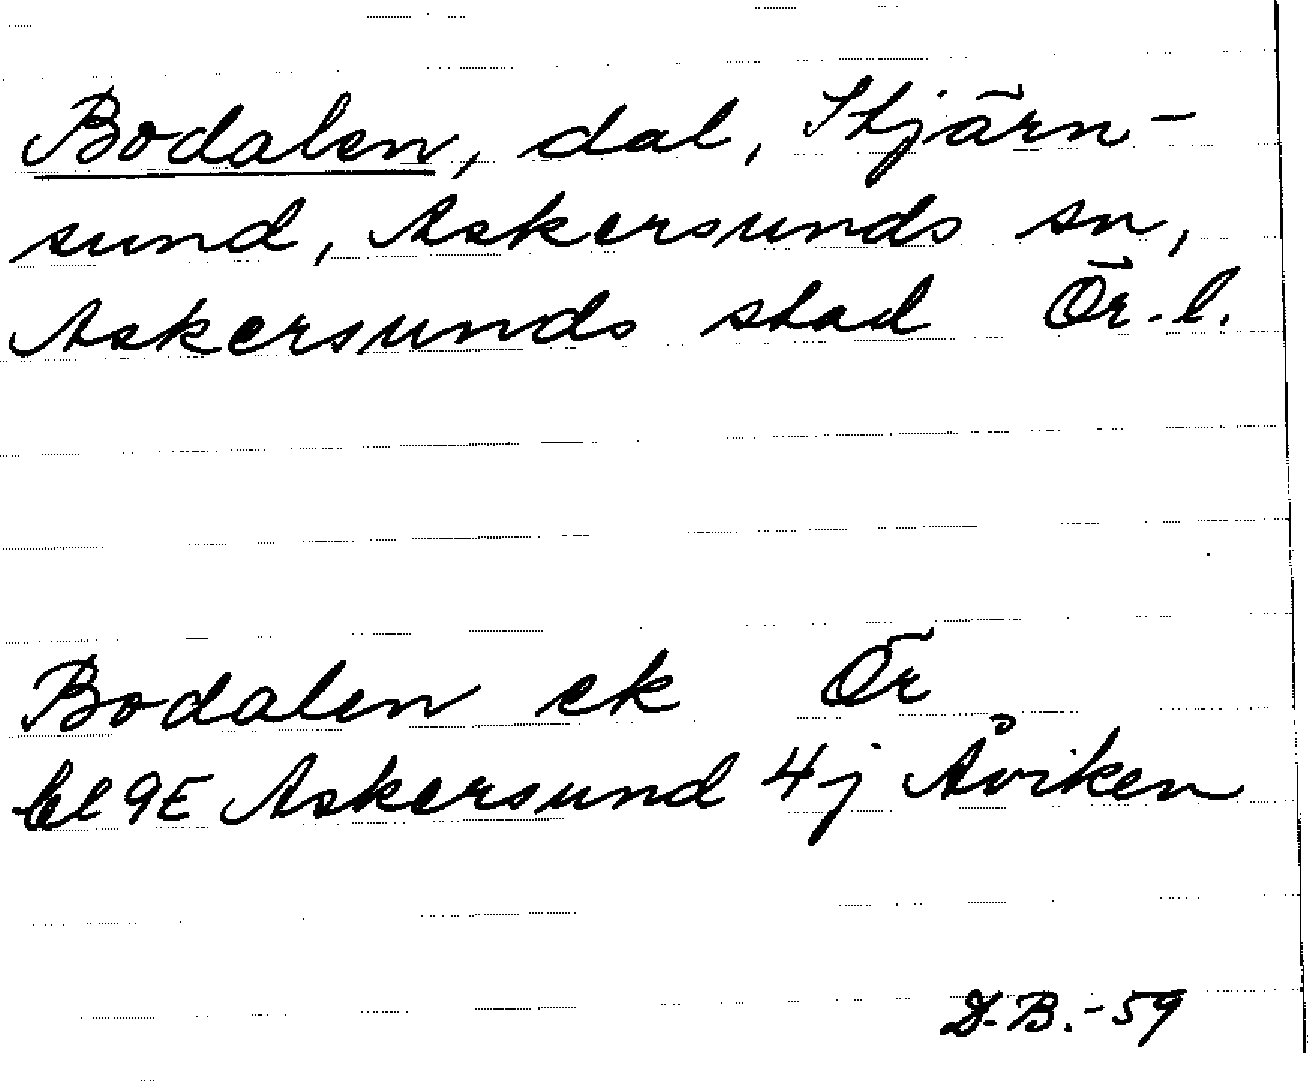 Bodalen, dal, Stjärn-
sund, Askersunds sn,
Askersunds stad Ör.l.
Bodalen ek Ör
bl 9E Askersund 4j Åviken
D.B.-59